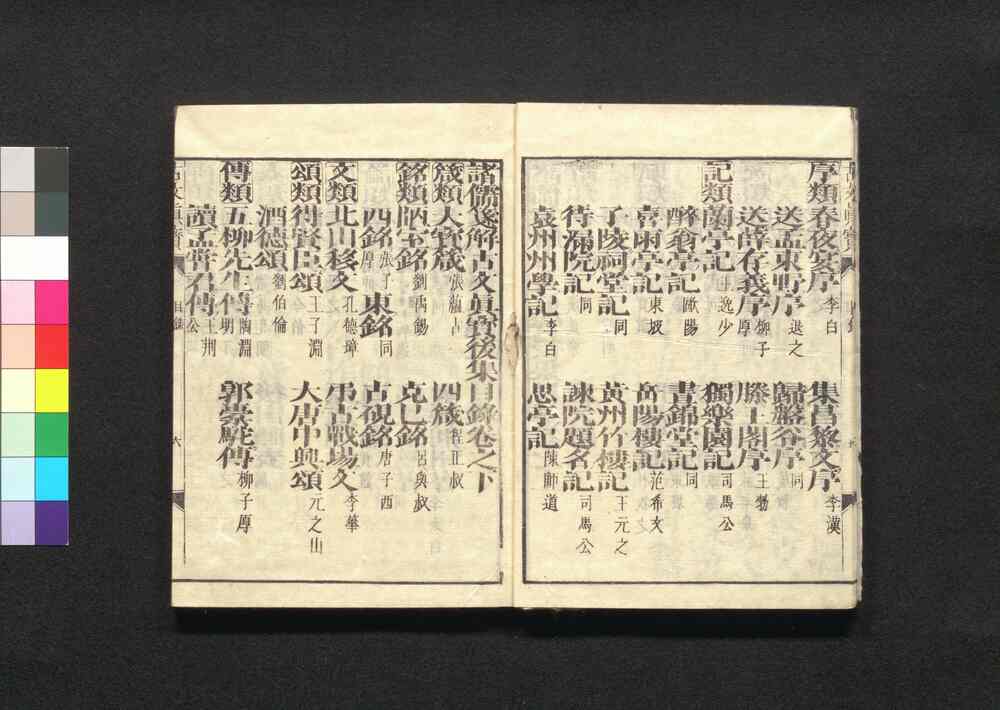 序類春夜宴序 李白 集昌黎文序 李漢
送孟東野序 退之 歸盤谷序 同
送薛存義序 柳子厚 滕王閣序 王勃
記類蘭亭記 王逸少 獨樂園記 司馬公
醉翁亭記 歐陽 晝錦堂記 同
喜雨亭記 東坡 岳陽樓記 范希文
子陵祠堂記 同 黃州竹樓記 王元之
待漏院記 同 諫院題名記 司馬公
袁州州學記 李白 思亭記 陳師道
諸儒箋解古文眞寶後集目錄卷之下
箴類大寶箴 張蘊古 四箴 程正叔
銘類陋室銘 劉禹錫 克己銘 呂與叔
西銘 張子厚 東銘 同 古硯銘 唐子西
文類北山移文 孔德璋 弔古戰場文 李華
頌類得賢臣頌 王子淵 大唐中興頌 元之山
酒德頌 劉伯倫
傳類五柳先生傳 陶淵明 郭橐駝傳 柳子厚
讀孟嘗君傳 王荊公
六